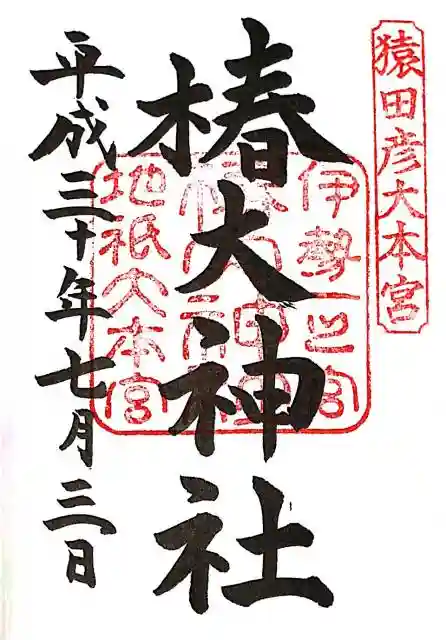 猿田彦大本宮
伊勢一之宮
椿大神社
地祇大本宮
椿大神社
平成三十年七月三日